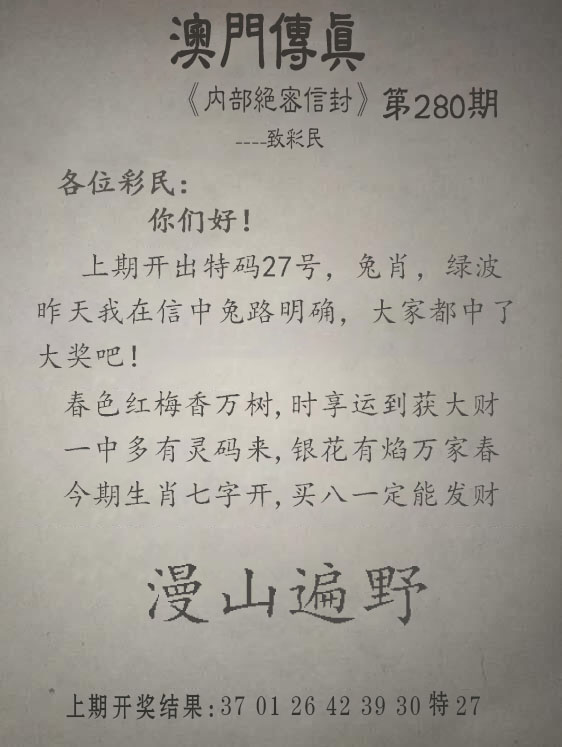 澳門傳眞
《内部絕密信封》第280期
----致彩民
各位彩民:
你们好!
上期开出特码27号，兔肖，绿波
昨天我在信中兔路明确，大家都中了
大奖吧!
春色红梅香万树,时享运到获大财
一中多有灵码来,银花有焰万家春
今期生肖七字开,买八一定能发财
漫山遍野
上期开奖结果:37 01 26 42 39 30 特 27